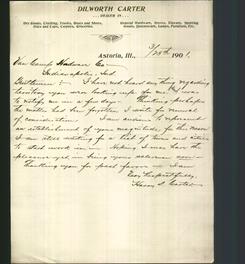 DILWORTH CARTER
DEALER IN
Dry Goods, Clothing, Trunks, Boots and Shoes,
Hats and Caps, Carpets, Groceries.
General Hardware, Stoves, Tinware, Sporting
Goods, Queensware, Lamps, Furniture, Etc.
Astoria, Ill., 3/25th 1901
Van Camp Hardware Co
Indianapolis, Ind
Gentlemen: I have not heard any thing regarding
territory you were looking up for me & was
to notify me in a few days. Thinking perhaps
the matter had been forgotten I write to remind
of consideration. I am anxious to represent
an establishment of your magnitude, for this reason
I am still waiting for a list of towns and
to start work in. Hoping I may have the
pleasure yet in being your salesman
Thanking you for past favors I am
Very Respectfully,
Carter